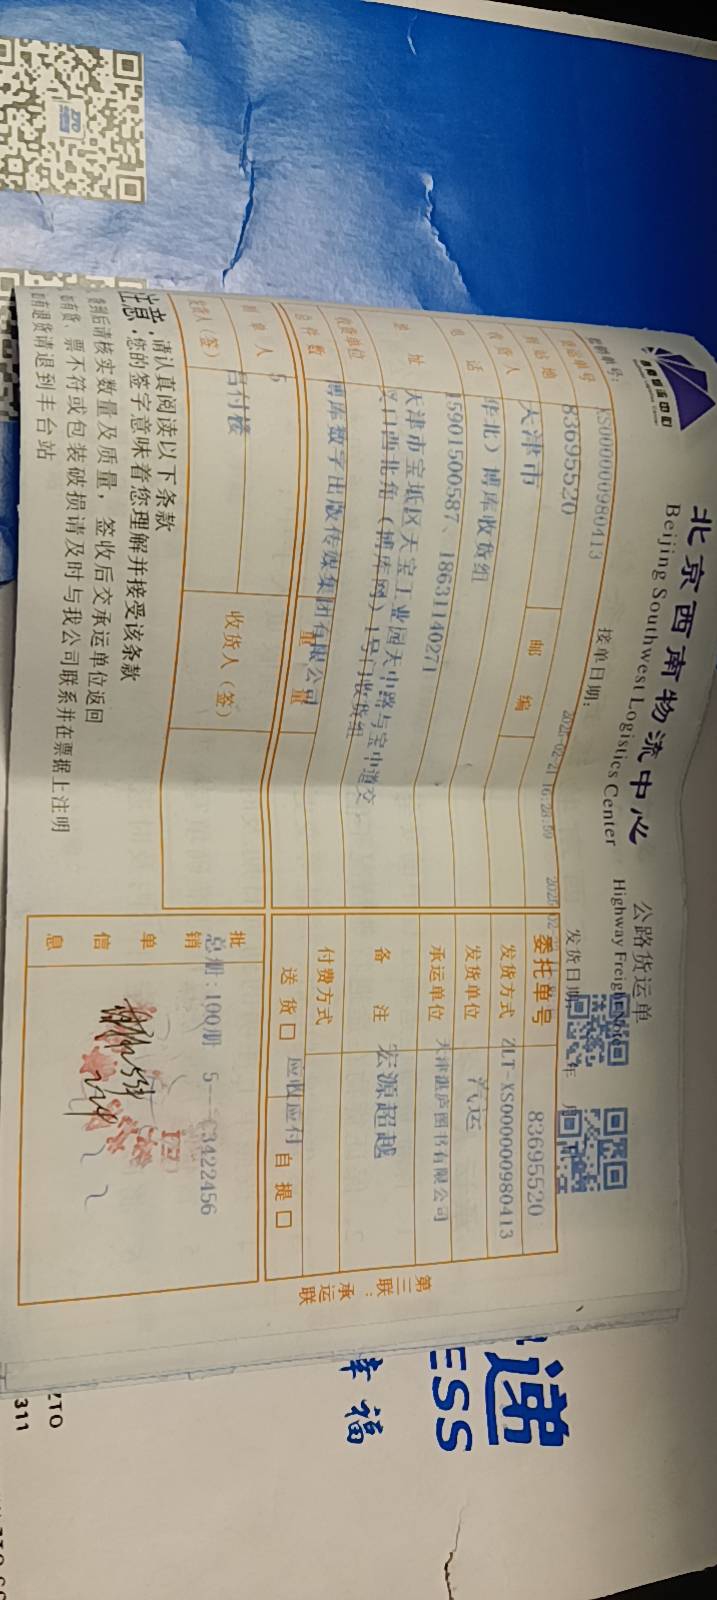 西南物流中心
北京西南物流中心 公路货运单
Beijing Southwest Logistics Center Highway Freight
XS000000980413 接单日期: 2025-02-21 16:28:50 发货日期 年 月
货运单号 83695520 委托单号 83695520
到站地 天津市 邮编 发货方式 ZLT-XS000000980413
收货人 (华北)博库收货组 发货单位 汽运
电话 15901500587、18631140271 承运单位 天津湛庐图书有限公司
地址 天津市宝坻区天宝工业园天中路与宝中道交
叉口西北角(博库网)1号门收货组 备注 宏源超越
收货单位 博库数字出版传媒集团有限公司 付费方式
总件数 5 量 量 送货□ 应收应付 自提□
制单人 吕付楼 收货人(签)
发货人(签)
批销单信息 总册:100册 5--C3422456
第三联:承运联
注意:请认真阅读以下条款
您的签字意味着您理解并接受该条款
请核实数量及质量,签收后交承运单位返回
货、票不符或包装破损请及时与我公司联系并在票据上注明
退货请退到丰台站
递
ESS
幸福
ZTO
311